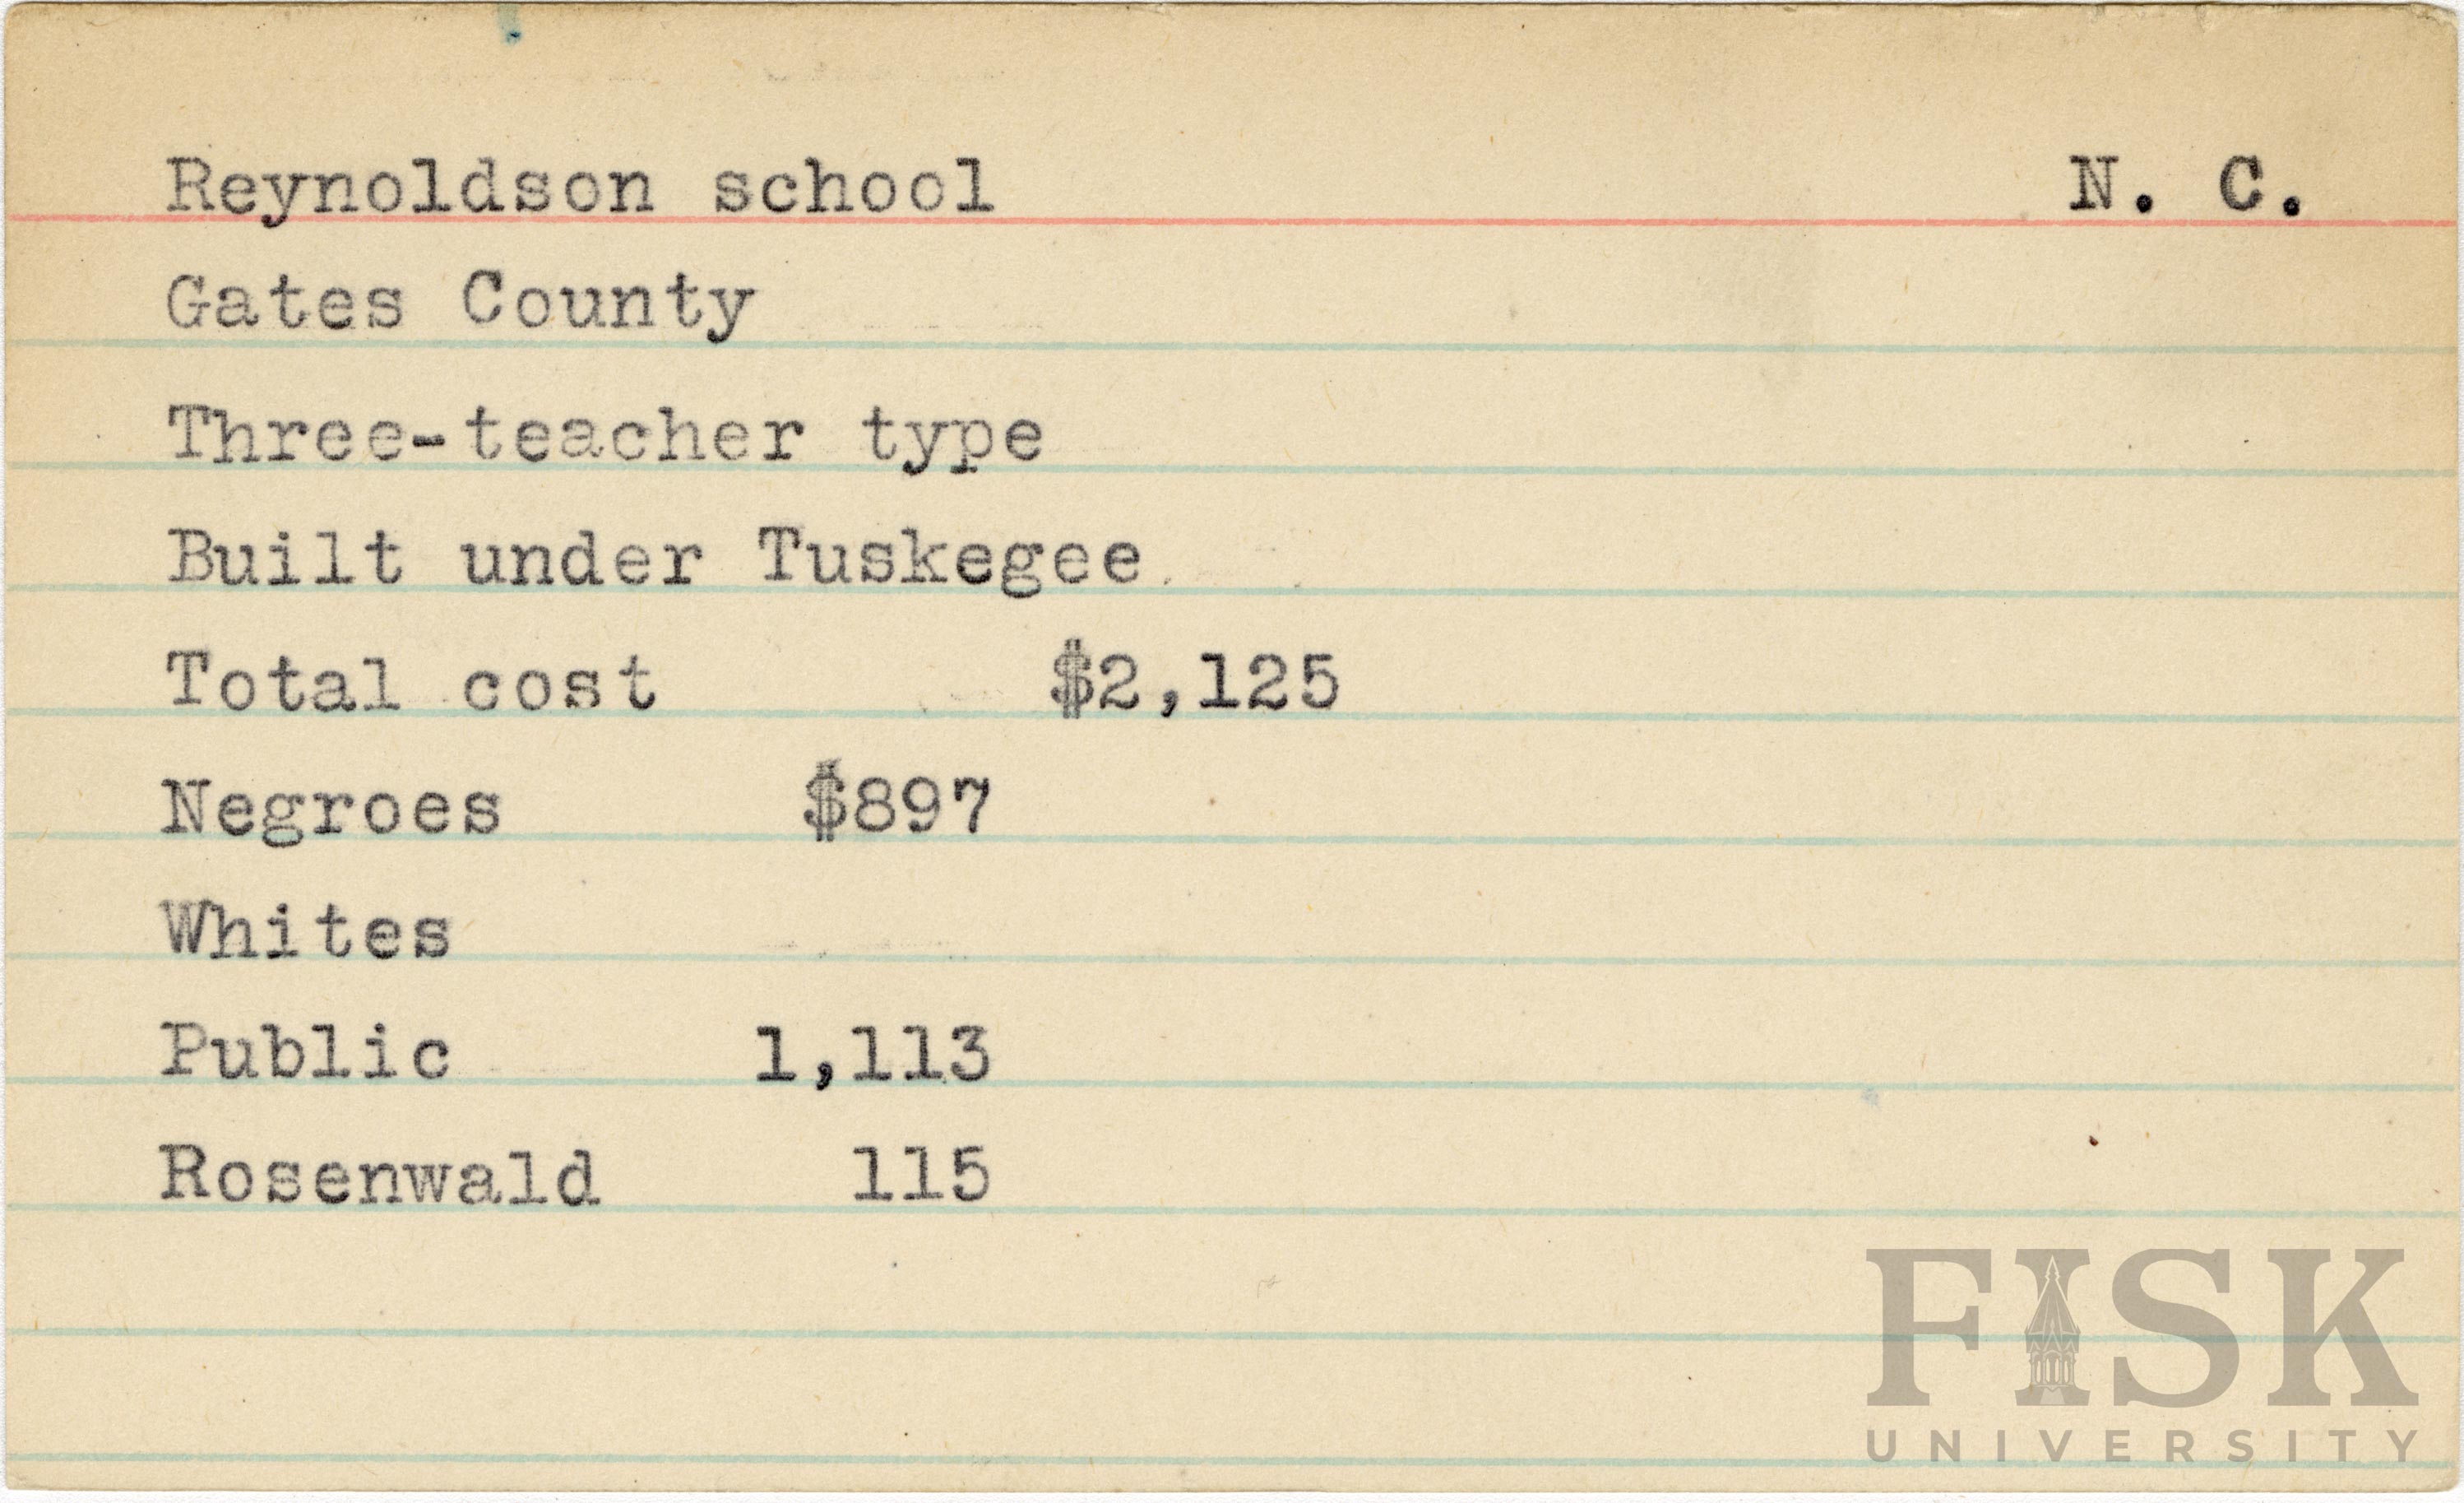 Reynoldson school N. C.
Gates County
Three-teacher type
Built under Tuskegee
Total cost $2,125
Negroes $897
Whites
Public 1,113
Rosenwald 115
FISK
UNIVERSITY